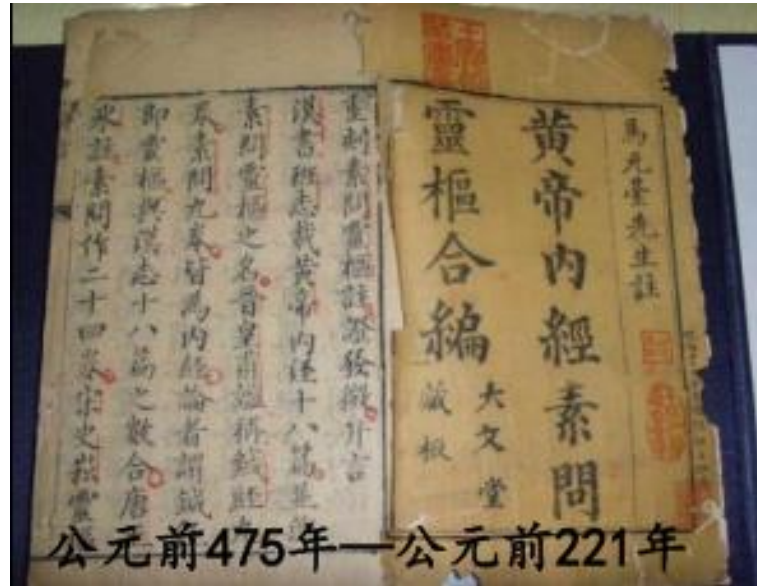 馬元臺先生註
黃帝內經素問
靈樞合編
大文堂
藏板
重刻素問靈樞註證發微弁言
漢書班志載黃帝內經十八篇並
素問靈樞之名晉皇甫謐稱鍼經
卷素問九卷皆爲內經論者謂鍼
即靈樞與漢志十八篇之數合唐
冰註素問作二十四卷宋史崧靈
公元前475年—公元前221年